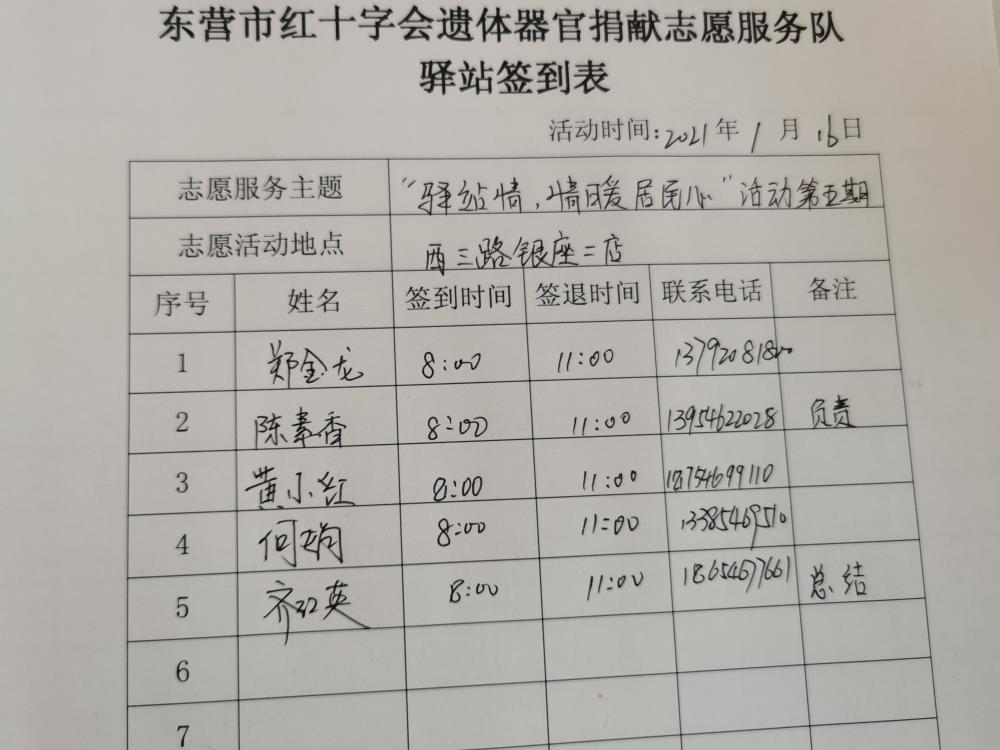 东营市红十字会遗体器官捐献志愿服务队
驿站签到表
活动时间:2021年 1 月 16日
志愿服务主题 “驿站情,情暖居民心”活动第五期
志愿活动地点 西三路银座二店
序号 姓名 签到时间 签退时间 联系电话 备注
1 郑金龙 8:00 11:00
2 陈素香 8:00 11:00 13954622028 负责
3 黄小红 8:00 11:00 18754699110
4 何娟 8:00 11:00 13385469510
5 齐红英 8:00 11:00 18654677661 总结
6
7